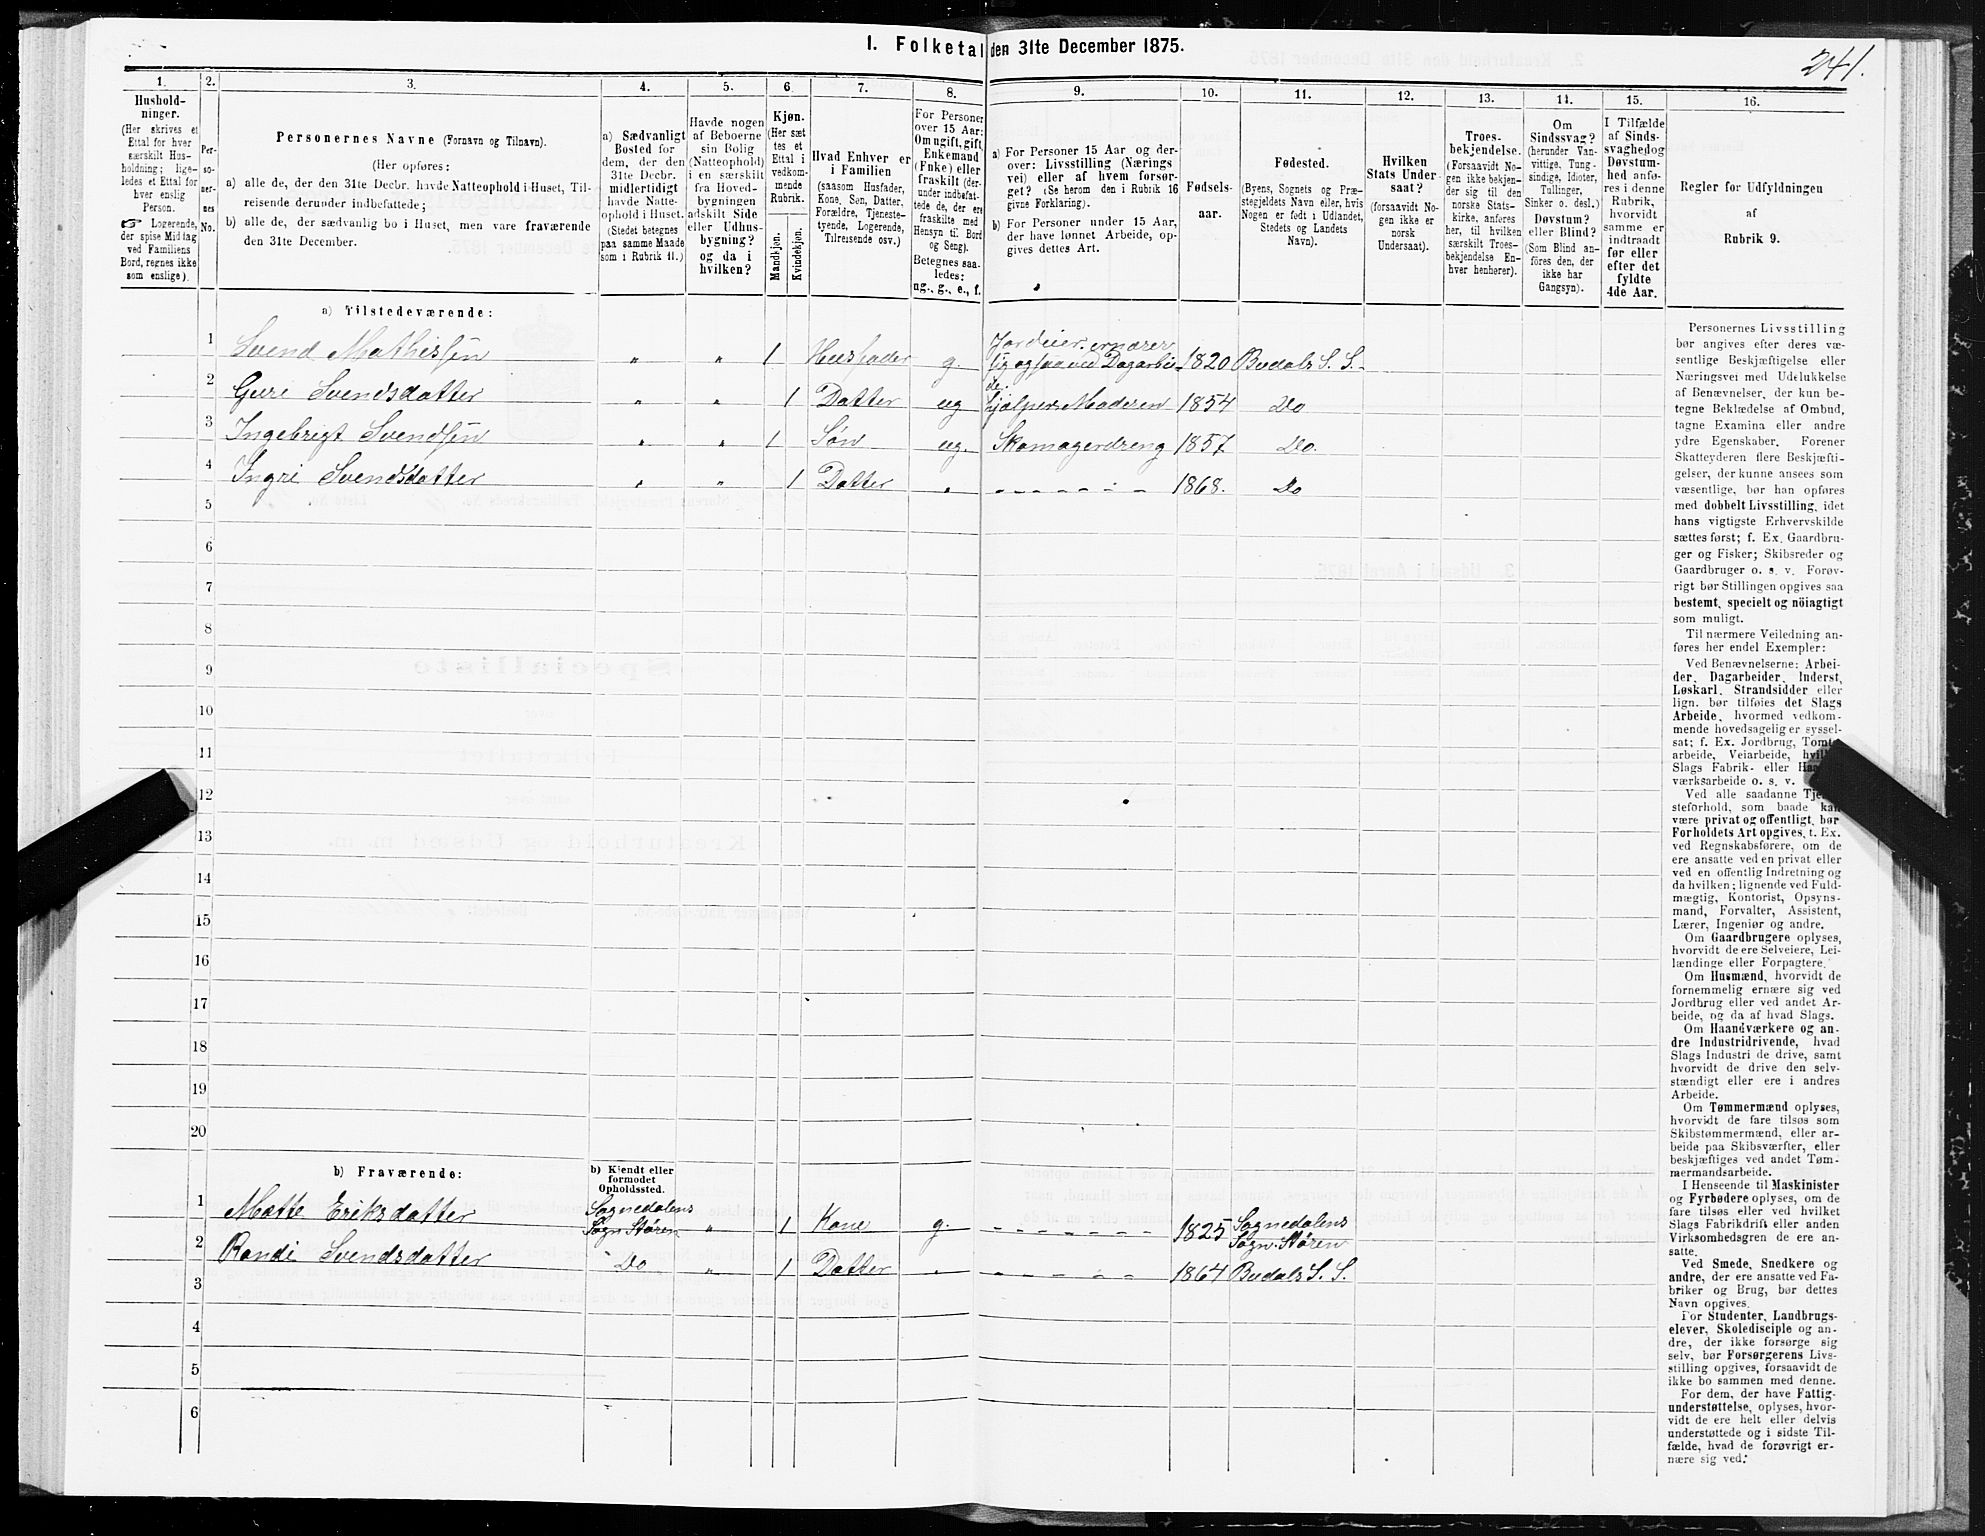 I. Folketal den 31te December 1875.
241.
1.
Hushold-
ninger.
(Her skrives et
Ettal for hver
særskilt Hus-
holdning; lige-
ledes et Ettal for
hver enslig
Person.
☞ Logerende,
der spise Middag
ved Familiens
Bord, regnes ikke
som enslige).
2.
Per-
so-
ner-
nes
No.
3.
Personernes Navne (Fornavn og Tilnavn).
(Her opføres:
a) alle de, der den 31te Decbr. havde Natteophold i Huset, Til-
reisende derunder indbefattede;
b) alle de, der sædvanlig bo i Huset, men vare fraværende
den 31te December.
4.
a) Sædvanligt
Bosted for
dem, der den
31te Decbr.
midlertidigt
havde Natte-
ophold i Huset.
(Stedet betegnes
paa samme Maade
som i Rubrik 11.)
5.
Havde nogen
af Beboerne
sin Bolig
(Natteophold)
i en særskilt
fra Hoved-
bygningen
adskilt Side
eller Udhus-
bygning?
og da i
hvilken?
6.
Kjøn.
(Her sæt
tes et
Ettal i
vedkom-
mende
Rubrik.
Mandkjøn.
Kvindekjøn.
7.
Hvad Enhver er
i Familien
(saasom Husfader,
Kone, Søn, Datter,
Forældre, Tjeneste-
tyende, Logerende,
Tilreisende osv.)
8.
For Personer
over 15 Aar:
Om ugift, gift,
Enkemand
(Enke) eller
fraskilt (der-
under indbefat-
tede de, der ere
fraskilte med
Hensyn til Bord
og Seng).
Betegnes saa-
ledes:
ug., g., e., f.
9.
a) For Personer 15 Aar og der-
over: Livsstilling (Nærings
vei) eller af hvem forsør-
get? (Se herom den i Rubrik 16
givne Forklaring).
b) For Personer under 15 Aar,
der have lønnet Arbeide, op-
gives dettes Art.
10.
Fødsels-
aar.
11.
Fødested.
(Byens, Sognets og Præ-
stegjeldets Navn eller, hvis
Nogen er født i Udlandet,
Stedets og Landets
Navn).
12.
Hvilken
Stats Under-
saat?
(forsaavidt No-
gen ikke er
norsk
Undersaat).
13.
Troes-
bekjendelse.
(Forsaavidt No-
gen ikke bekjen-
der sig til den
norske Stats-
kirke, anføres
her, til hvilken
særskilt Troes-
bekjendelse En-
hver henhører).
14.
Om
Sindssvag?
(herunder Van-
vittige, Tung-
sindige, Idioter,
Tullinger,
Sinker o. desl.)
Døvstum?
eller Blind?
(Som Blind an-
føres den, der
ikke har
Gangsyn).
15.
I Tilfælde
af Sinds-
svaghed og
Døvstum-
hed anfø-
res i denne
Rubrik,
hvorvidt
samme er
indtraadt
før eller
efter det
fyldte
4de Aar.
16.
Regler for Udfyldningen
af
Rubrik 9.
a) Tilstedeværende:
Jordeier, ernærer
1 Svend Mathissen " " 1 Husfader g. sig ogsaa ved Dagarbei- 1820 Budals S. S.
de.
2 Guri Svendsdatter " " 1 Datter ug hjælper Moderen 1854 Do
3 Ingebrigt Svendsen " " 1 Søn ug. Skomagerdreng 1857 Do.
4 Ingri Svendsdatter " " 1 Datter " - - - - - - - 1868. Do
5
6
7
8
9
10
11
12
13
14
15
16
17
18
19
20
b) Fraværende:
b) Kjendt eller
formodet
Opholdssted.
1 Mette Eriksdatter Sognedalens " 1 Kone g. - - - - - - - 1825 Sognedalens
Sogn Støren Sogn. Støren
2 Randi Svendsdatter Do " 1 Datter " - - - - - - - 1864 Budals S. S.
3
4
5
6
Personernes Livsstilling
bør angives efter deres væ-
sentlige Beskjæftigelse eller
Næringsvei med Udelukkelse
af Benævnelser, der kun be-
tegne Beklædelse af Ombud,
tagne Examina eller andre
ydre Egenskaber. Forener
Skatteyderen flere Beskjæfti-
gelser, der kunne ansees som
væsentlige, bør han opføres
med dobbelt Livsstilling, idet
hans vigtigste Erhvervskilde
sættes først; f. Ex. Gaardbru-
ger og Fisker; Skibsreder og
Gaardbruger o. s. v. Forøv-
rigt bør Stillingen opgives saa
bestemt, specielt og nöiagtigt
som muligt.
Til nærmere Veiledning an-
føres her endel Exempler:
Ved Benævnelserne: Arbei-
der, Dagarbeider, Inderst,
Løskarl, Strandsidder eller
lign. bør tilføies det Slags
Arbeide, hvormed vedkom-
mende hovedsagelig er syssel-
sat; f. Ex. Jordbrug, Tomte-
arbeide, Veiarbeide, hvilket
Slags Fabrik- eller Haand-
værksarbeide o. s. v.
Ved alle saadanne Tjene-
steforhold, som baade kan
være privat og offentligt, bør
Forholdets Art opgives, t. Ex.
ved Regnskabsførere, om de
ere ansatte ved en privat eller
ved en offentlig Indretning og
da hvilken; lignende ved Fuld-
mægtig, Kontorist, Opsyns-
mand, Forvalter, Assistent,
Lærer, Ingeniør og andre.
Om Gaardbrugere oplyses,
hvorvidt de ere Selveiere, Lei-
lændinge eller Forpagtere.
Om Husmænd, hvorvidt de
fornemmelig ernære sig ved
Jordbrug eller ved andet Ar-
beide, og da af hvad Slags.
Om Haandværkere og an-
dre Industridrivende, hvad
Slags Industri de drive, samt
hvorvidt de drive den selv-
stændigt eller ere i andres
Arbeide.
Om Tømmermænd oplyses,
hvorvidt de fare tilsøs som
Skibstømmermænd, eller ar-
beide paa Skibsværfter, eller
beskjæftiges ved andet Tøm-
mermandsarbeide.
I Henseende til Maskinister
og Fyrbødere oplyses, om de
fare tilsøs eller ved hvilket
Slags Fabrikdrift eller anden
Virksomhedsgren de ere an-
satte.
Ved Smede, Snedkere og
andre, der ere ansatte ved Fa-
briker og Brug, bør dettes
Navn opgives.
For Studenter, Landbrugs-
elever, Skoledisciple og an-
dre, der ikke forsørge sig
selv, bør Forsørgerens Livs-
stilling opgives, forsaavidt de
ikke bo sammen med denne.
For dem, der have Fattig-
understøttelse, oplyses, hvor-
vidt de ere helt eller delvis
understøttede og i sidste Til-
fælde, hvad de forøvrigt er-
nære sig ved.